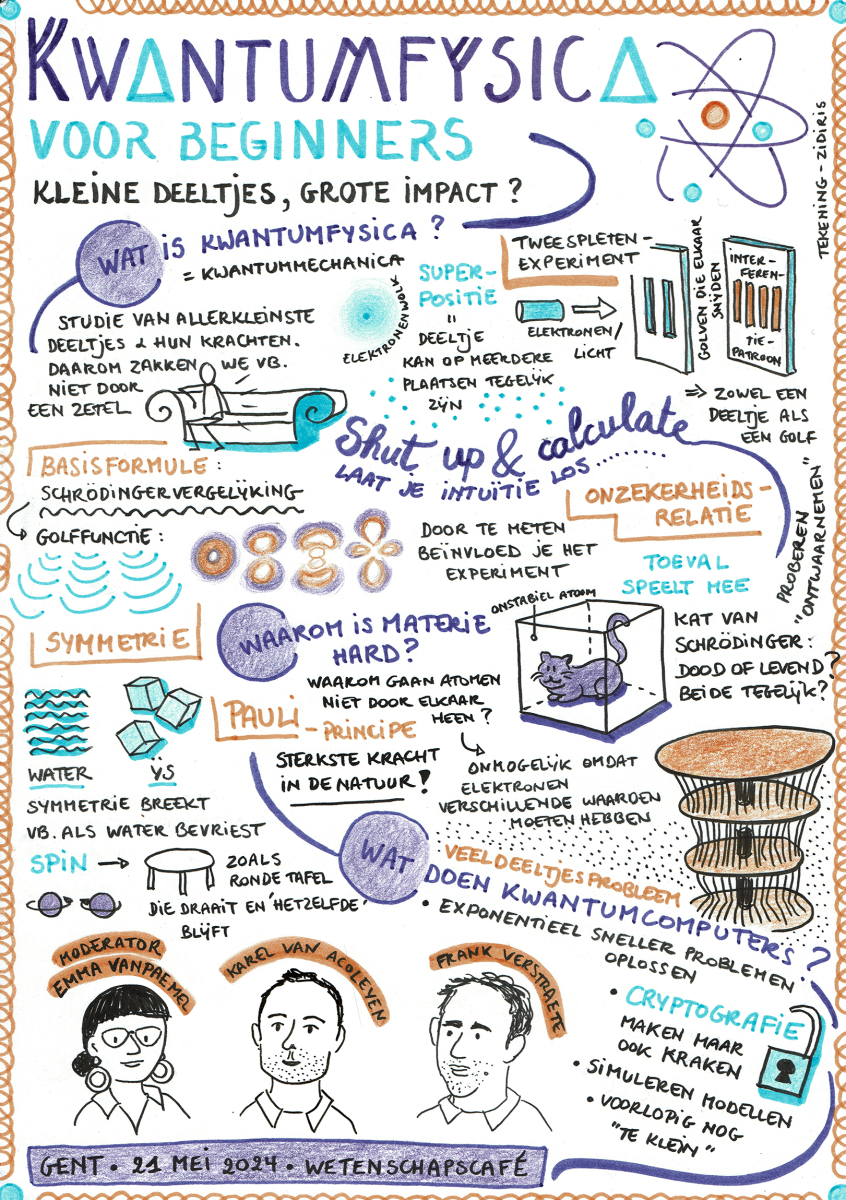 KWANTUMFYSICA
VOOR BEGINNERS
KLEINE DEELTJES, GROTE IMPACT?
TEKENING - ZIDIRIS
WAT IS KWANTUMFYSICA?
= KWANTUMMECHANICA
STUDIE VAN ALLERKLEINSTE
DEELTJES & HUN KRACHTEN.
DAAROM ZAKKEN WE VB.
NIET DOOR
EEN ZETEL
ELEKTRONENWOLK
SUPER-
POSITIE
=
DEELTJE
KAN OP MEERDERE
PLAATSEN TEGELIJK
ZIJN
TWEESPLETEN-
EXPERIMENT
ELEKTRONEN/
LICHT
GOLVEN DIE ELKAAR
SNIJDEN
INTER-
FEREN-
TIE-
PATROON
=> ZOWEL EEN
DEELTJE ALS
EEN GOLF
Shut up & calculate
LAAT JE INTUÏTIE LOS........
PROBEREN
"ONTWAARNEMEN"
BASISFORMULE:
SCHRÖDINGERVERGELIJKING
GOLFFUNCTIE:
ONZEKERHEIDS-
RELATIE
DOOR TE METEN
BEÏNVLOED JE HET
EXPERIMENT
TOEVAL
SPEELT MEE
SYMMETRIE
WATER
IJS
SYMMETRIE BREEKT
VB. ALS WATER BEVRIEST
WAAROM IS MATERIE
HARD?
WAAROM GAAN ATOMEN
NIET DOOR ELKAAR
HEEN?
ONSTABIEL ATOOM
KAT VAN
SCHRÖDINGER:
DOOD OF LEVEND?
BEIDE TEGELIJK?
PAULI-PRINCIPE
STERKSTE KRACHT
IN DE NATUUR!
ONMOGELIJK OMDAT
ELEKTRONEN
VERSCHILLENDE WAARDEN
MOETEN HEBBEN
SPIN
ZOALS
RONDE TAFEL
DIE DRAAIT EN 'HETZELFDE'
BLIJFT
VEELDEELTJESPROBLEEM
WAT DOEN KWANTUMCOMPUTERS?
• EXPONENTIEEL SNELLER PROBLEMEN
OPLOSSEN
• CRYPTOGRAFIE
MAKEN MAAR
OOK KRAKEN
• SIMULEREN MODELLEN
• VOORLOPIG NOG
"TE KLEIN"
MODERATOR
EMMA VANPAEMEL
KAREL VAN ACOLEYEN
FRANK VERSTRAETE
GENT • 21 MEI 2024 • WETENSCHAPSCAFÉ